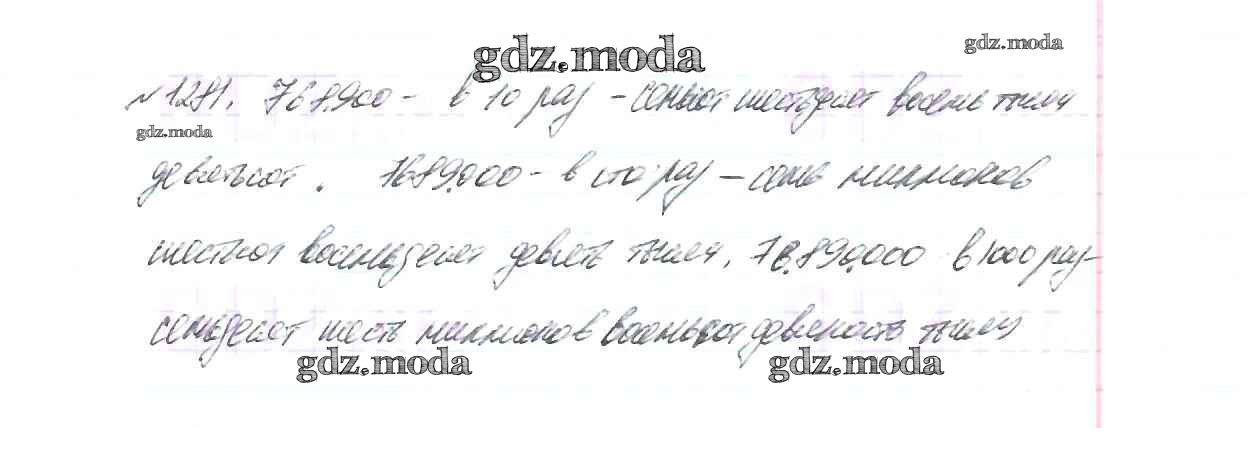 gdz.moda
gdz.moda
№1281. 768.900 - в 10 раз - семьсот шестьдесят восемь тысяч
gdz.moda
девятьсот. 7689.000 - в сто раз - семь миллионов
шестьсот восемьдесят девять тысяч. 76.890.000 в 1000 раз -
семьдесят шесть миллионов восемьсот девяносто тысяч
gdz.moda
gdz.moda